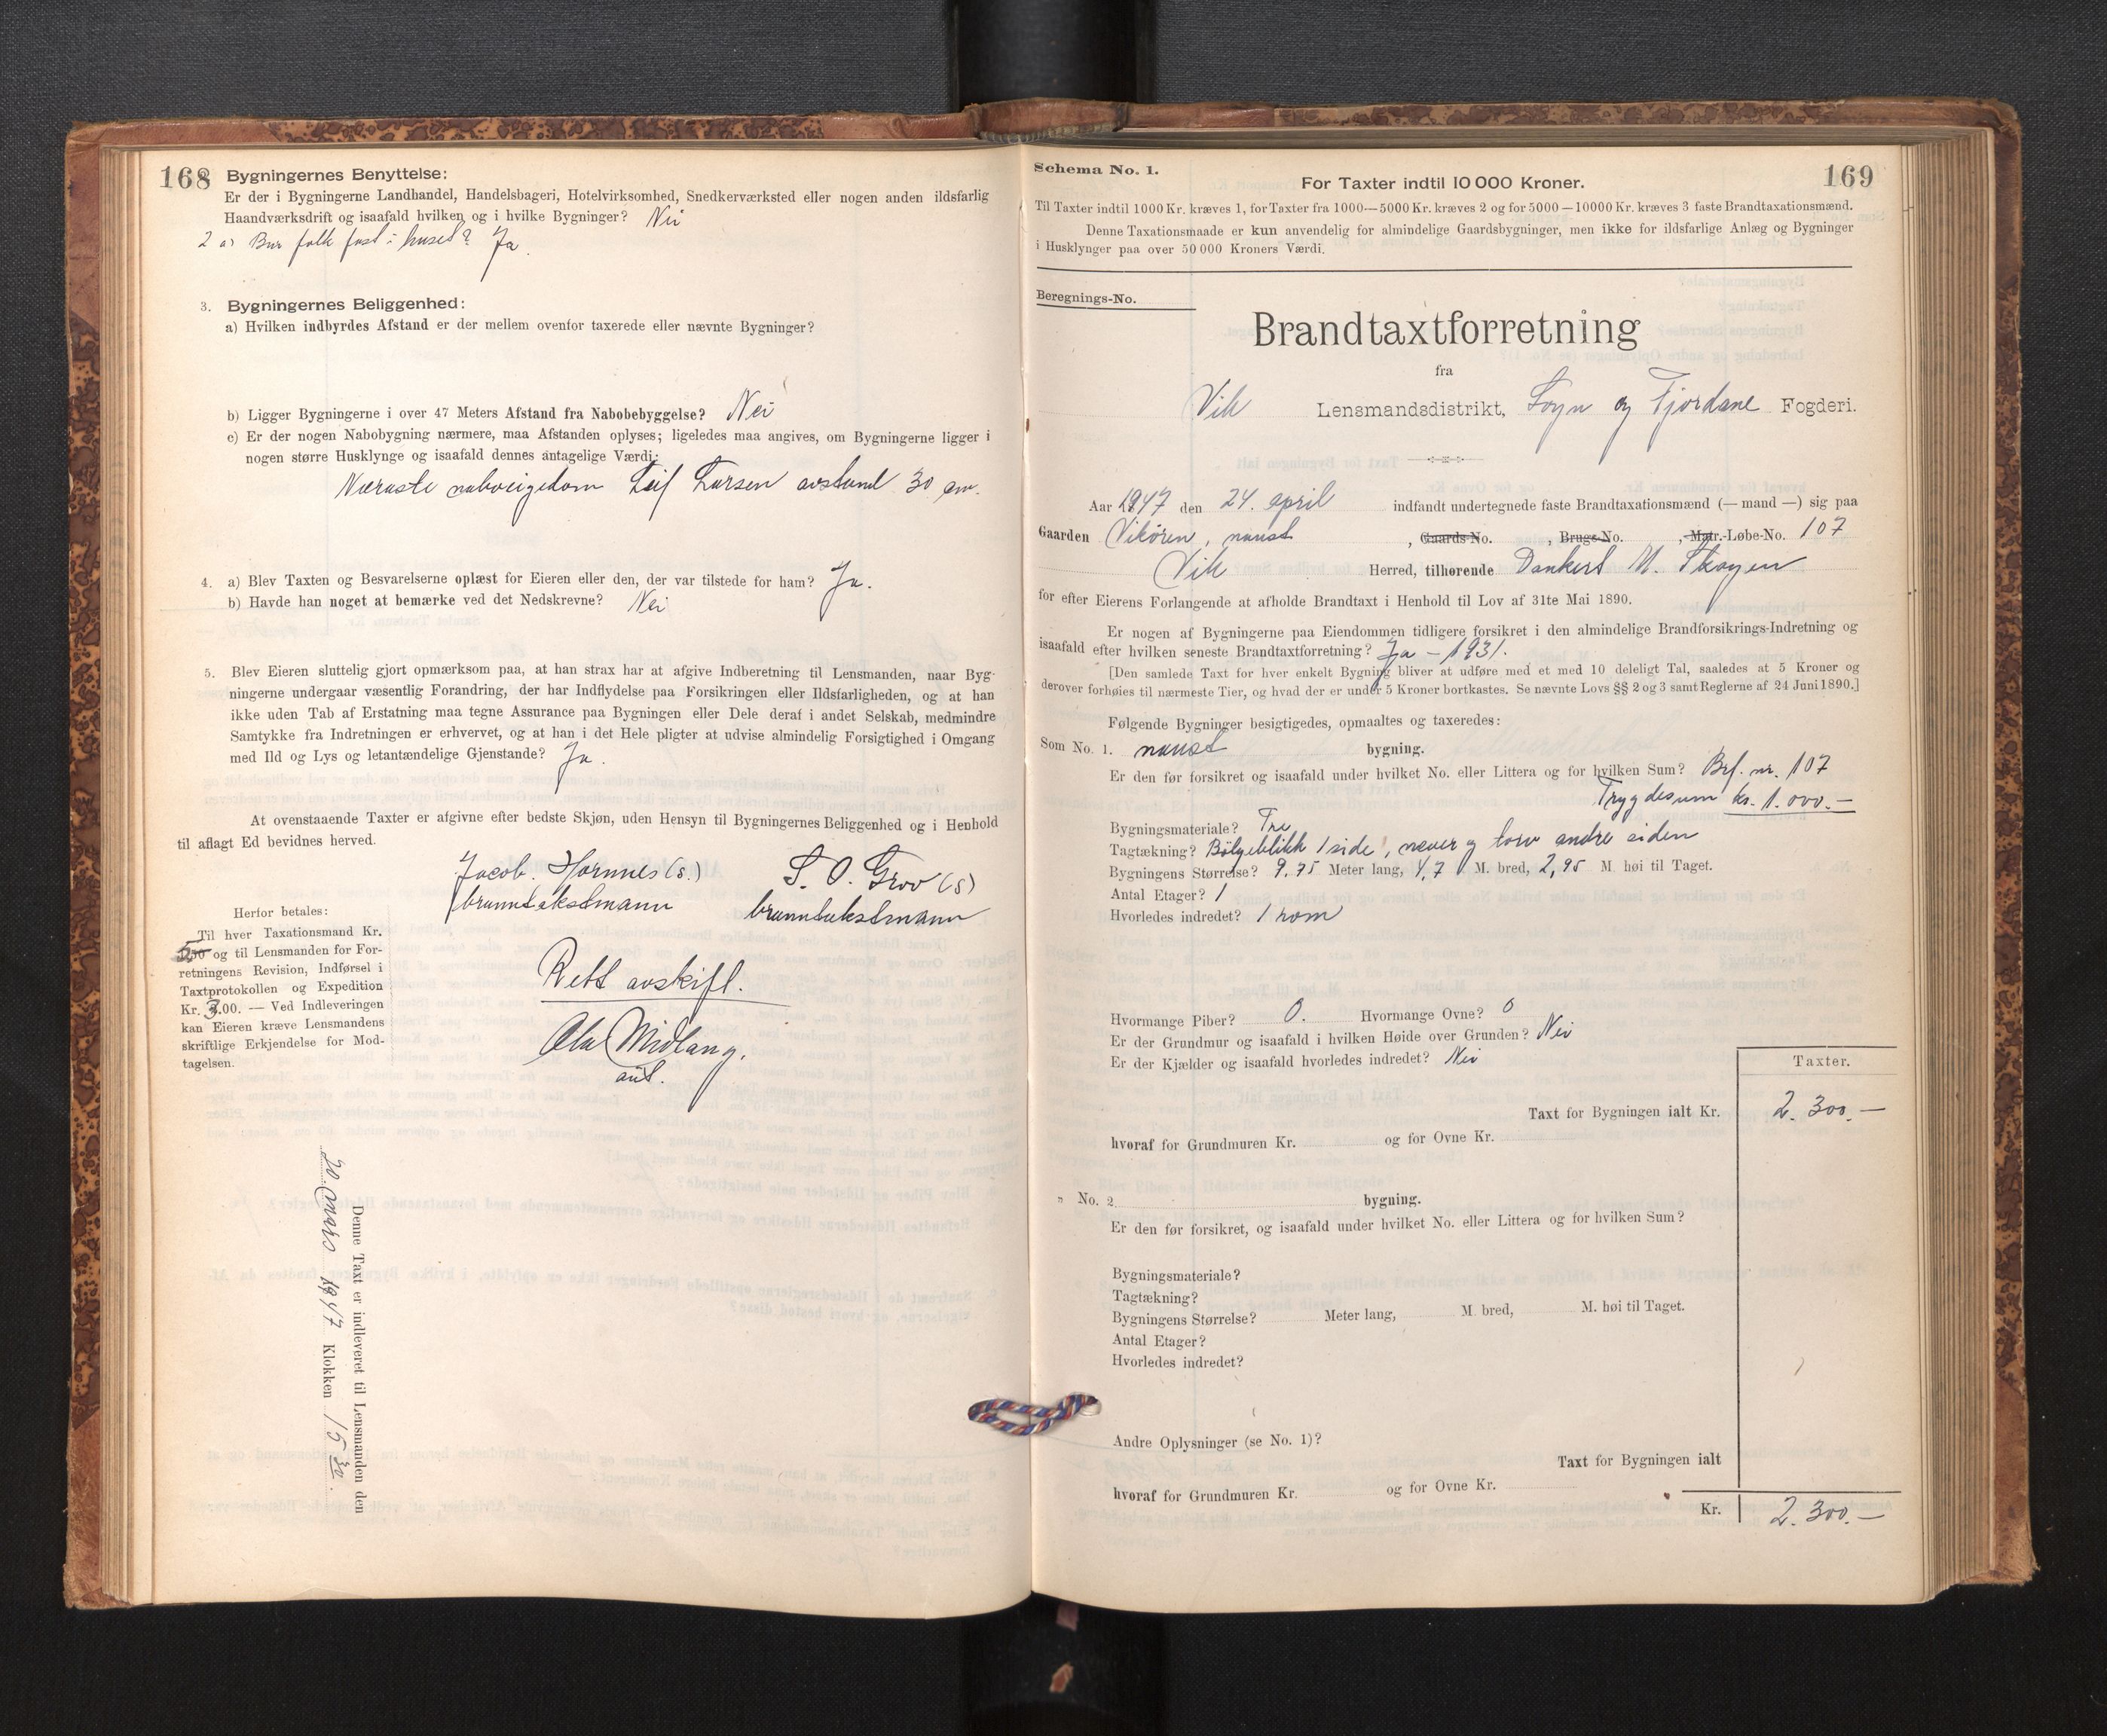 168
Bygningernes Benyttelse:
Er der i Bygningerne Landhandel, Handelsbageri, Hotelvirksomhed, Snedkerværksted eller nogen anden ildsfarlig
Haandværksdrift og isaafald hvilken og i hvilke Bygninger? Nei
2 a) Bur folk fast i huset? Ja.
3. Bygningernes Beliggenhed:
a) Hvilken indbyrdes Afstand er der mellem ovenfor taxerede eller nævnte Bygninger?
b) Ligger Bygningerne i over 47 Meters Afstand fra Nabobebyggelse? Nei
c) Er der nogen Nabobygning nærmere, maa Afstanden oplyses; ligeledes maa angives, om Bygningerne ligger i
nogen større Husklynge og isaafald dennes antagelige Værdi:
Næraste naboeigedom Leif Larsen avstand 30 m.
4. a) Blev Taxten og Besvarelserne oplæst for Eieren eller den, der var tilstede for ham? Ja.
b) Havde han noget at bemærke ved det Nedskrevne? Nei
5. Blev Eieren sluttelig gjort opmærksom paa, at han strax har at afgive Indberetning til Lensmanden, naar Byg-
ningerne undergaar væsentlig Forandring, der har Indflydelse paa Forsikringen eller Ildsfarligheden, og at han
ikke uden Tab af Erstatning maa tegne Assurance paa Bygningen eller Dele deraf i andet Selskab, medmindre
Samtykke fra Indretningen er erhvervet, og at han i det Hele pligter at udvise almindelig Forsigtighed i Omgang
med Ild og Lys og letantændelige Gjenstande? Ja.
At ovenstaaende Taxter er afgivne efter bedste Skjøn, uden Hensyn til Bygningernes Beliggenhed og i Henhold
til aflagt Ed bevidnes herved.
Jacob. Hornnes (s.) S. O. Grov (s)
branntakstmann branntakstmann
Herfor betales:
Til hver Taxationsmand Kr.
og til Lensmanden for For-
retningens Revision, Indførsel i
Taxtprotokollen og Expedition
Kr. 3.00. — Ved Indleveringen
kan Eieren kræve Lensmandens
skriftlige Erkjendelse for Mod-
tagelsen.
Rett avskift.
Ola Midlang.
aut.
Denne Taxt er indleveret til Lensmanden den
20. mars 1947 Klokken 15 30.
Schema No. 1.
169
For Taxter indtil 10 000 Kroner.
Til Taxter indtil 1000 Kr. kræves 1, for Taxter fra 1000—5000 Kr. kræves 2 og for 5000—10000 Kr. kræves 3 faste Brandtaxationsmænd.
Denne Taxationsmaade er kun anvendelig for almindelige Gaardsbygninger, men ikke for ildsfarlige Anlæg og Bygninger
i Husklynger paa over 50 000 Kroners Værdi.
Beregnings-No.
Brandtaxtforretning
fra
Vik Lensmandsdistrikt, Sogn og Fjordane Fogderi.
Aar 1947 den 24. april indfandt undertegnede faste Brandtaxationsmænd (— mand —) sig paa
Gaarden Vikøren, naust, Gaards-No. , Brugs-No. , Matr.-Løbe-No. 107
Vik Herred, tilhørende Dankert M. Skagen
for efter Eierens Forlangende at afholde Brandtaxt i Henhold til Lov af 31te Mai 1890.
Er nogen af Bygningerne paa Eiendommen tidligere forsikret i den almindelige Brandforsikrings-Indretning og
isaafald efter hvilken seneste Brandtaxtforretning? Ja – 1931.
[Den samlede Taxt for hver enkelt Bygning bliver at udføre med et med 10 deleligt Tal, saaledes at 5 Kroner og
derover forhøies til nærmeste Tier, og hvad der er under 5 Kroner bortkastes. Se nævnte Lovs §§ 2 og 3 samt Reglerne af 24 Juni 1890.]
Følgende Bygninger besigtigedes, opmaaltes og taxeredes:
Som No. 1. naust bygning.
Er den før forsikret og isaafald under hvilket No. eller Littera og for hvilken Sum? Brf. nr. 107
Trygdesum kr. 1.000.—
Bygningsmateriale? Tre
Tagtækning? Bølgeblikk 1 side, never og torv andre siden
Bygningens Størrelse? 9,75 Meter lang, 4,7 M. bred, 2,95 M. høi til Taget.
Antal Etager? 1
Hvorledes indredet? 1 rom
Hvormange Piber? 0. Hvormange Ovne? 0
Er der Grundmur og isaafald i hvilken Høide over Grunden? Nei
Er der Kjælder og isaafald hvorledes indredet? Nei
Taxter.
Taxt for Bygningen ialt Kr. 2.300.—
hvoraf for Grundmuren Kr. og for Ovne Kr.
" No. 2 bygning.
Er den før forsikret, og isaafald under hvilket No. eller Littera og for hvilken Sum?
Bygningsmateriale?
Tagtækning?
Bygningens Størrelse? Meter lang, M. bred, M. høi til Taget.
Antal Etager?
Hvorledes indredet?
Andre Oplysninger (se No. 1)?
Taxt for Bygningen ialt
hvoraf for Grundmuren Kr. og for Ovne Kr.
Kr. 2.300.—